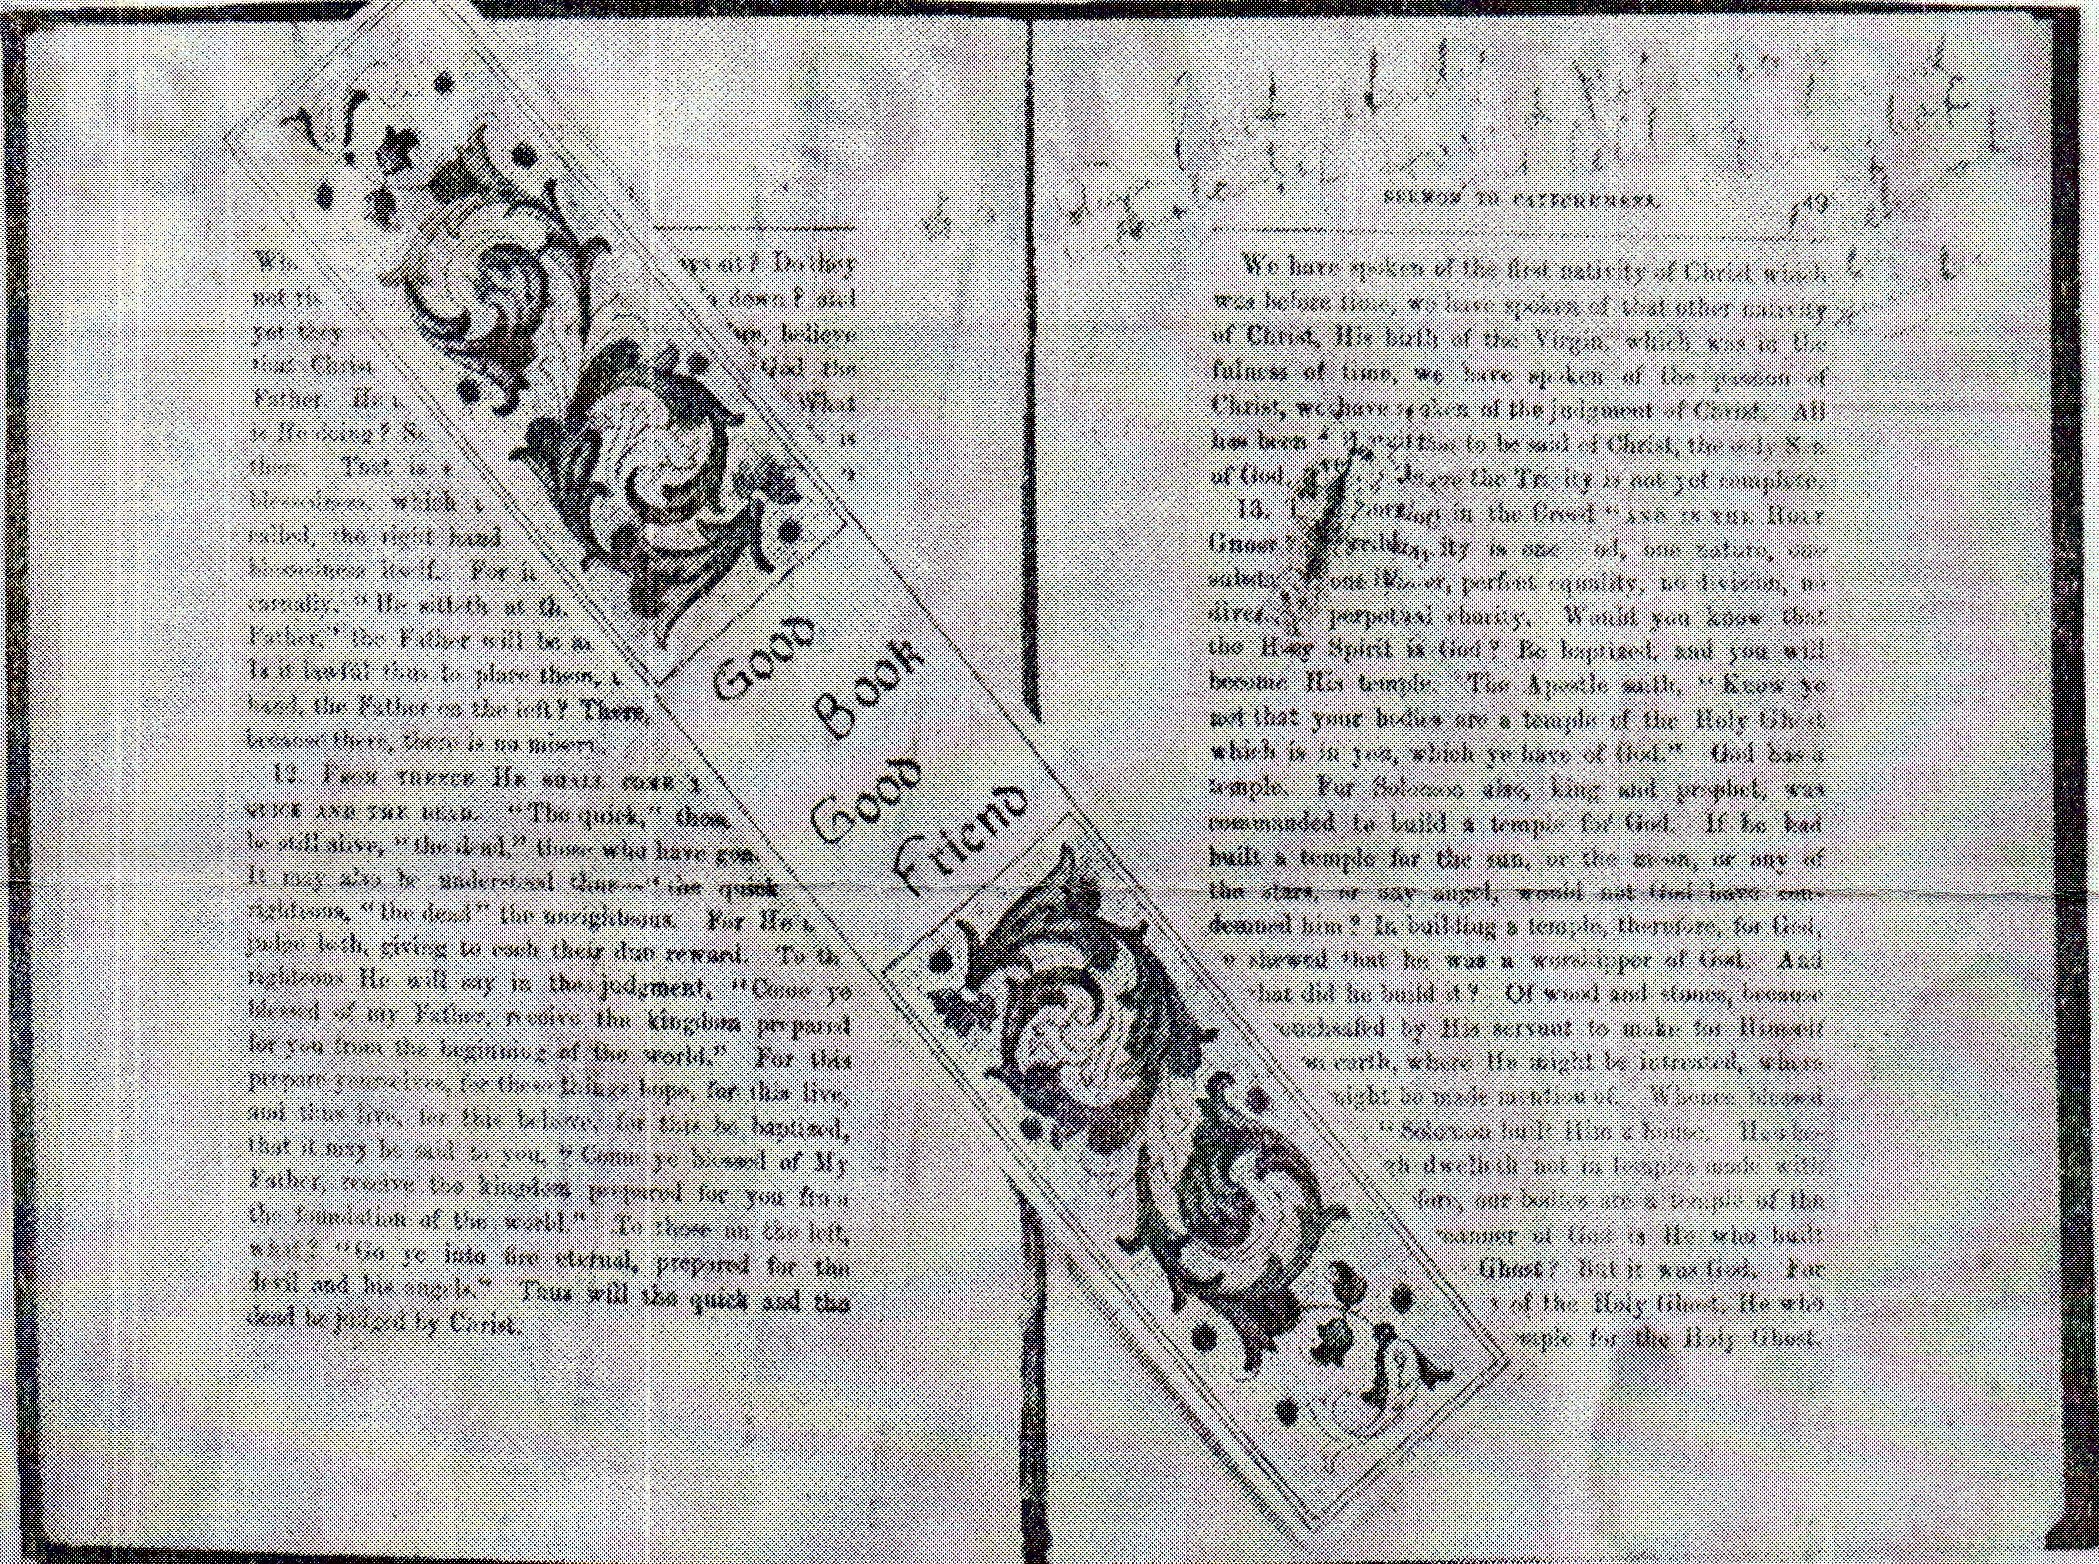 Who ys at? Do they
not th down? and
yet they believe
that Christ God the
Father. He What
is He doing? is
there. That is
blessedness, which
called, the right hand
blessedness itself. For if
carnally, "He sitteth at the
Father," the Father will be
Is it lawful thus to place them,
hand, the Father on the left? There,
because there, there is no misery
12. FROM THENCE HE SHALL COME
QUICK AND THE DEAD. "The quick," those
be still alive, "the dead," those who have gone
It may also be understood thus—"the quick
righteous, "the dead" the unrighteous. For He
judge both, giving to each their due reward. To the
righteous He will say in the judgment, "Come ye
blessed of my Father, receive the kingdom prepared
for you from the beginning of the world." For this
prepare yourselves, for these things hope, for this live,
and thus live, for this believe, for this be baptized,
that it may be said to you, "Come ye blessed of My
Father, receive the kingdom prepared for you from
the foundation of the world." To those on the left,
what? "Go ye into fire eternal, prepared for the
devil and his angels." Thus will the quick and the
dead be judged by Christ.
Good
Book
Good
Friend
SERMON TO CATECHUMENS. 49
We have spoken of the first nativity of Christ which
was before time, we have spoken of that other nativity
of Christ, His birth of the Virgin, which was in the
fulness of time, we have spoken of the passion of
Christ, we have spoken of the judgment of Christ. All
has been to be said of Christ, the only Son
of God, the Trinity is not yet complete.
13. in the Creed "AND IN THE HOLY
GHOST" is one God, one nature, one
one power, perfect equality, no division, no
perpetual charity. Would you know that
the Holy Spirit is God? Be baptized, and you will
become His temple. The Apostle saith, "Know ye
not that your bodies are a temple of the Holy Ghost
which is in you, which ye have of God." God has a
temple. For Solomon also, king and prophet, was
commanded to build a temple for God. If he had
built a temple for the sun, or the moon, or any of
the stars, or any angel, would not God have con-
demned him? In building a temple, therefore, for God,
shewed that he was a worshipper of God. And
what did he build it? Of wood and stones, because
vouchsafed by His servant to make for Himself
on earth, where He might be intreated, where
might be made mention of. Whence blessed
"Solomon built Him a house.
dwelleth not in temples made with
our bodies are a temple of the
manner of God is He who built
Ghost? But it was God. For
of the Holy Ghost, He who
temple for the Holy Ghost.